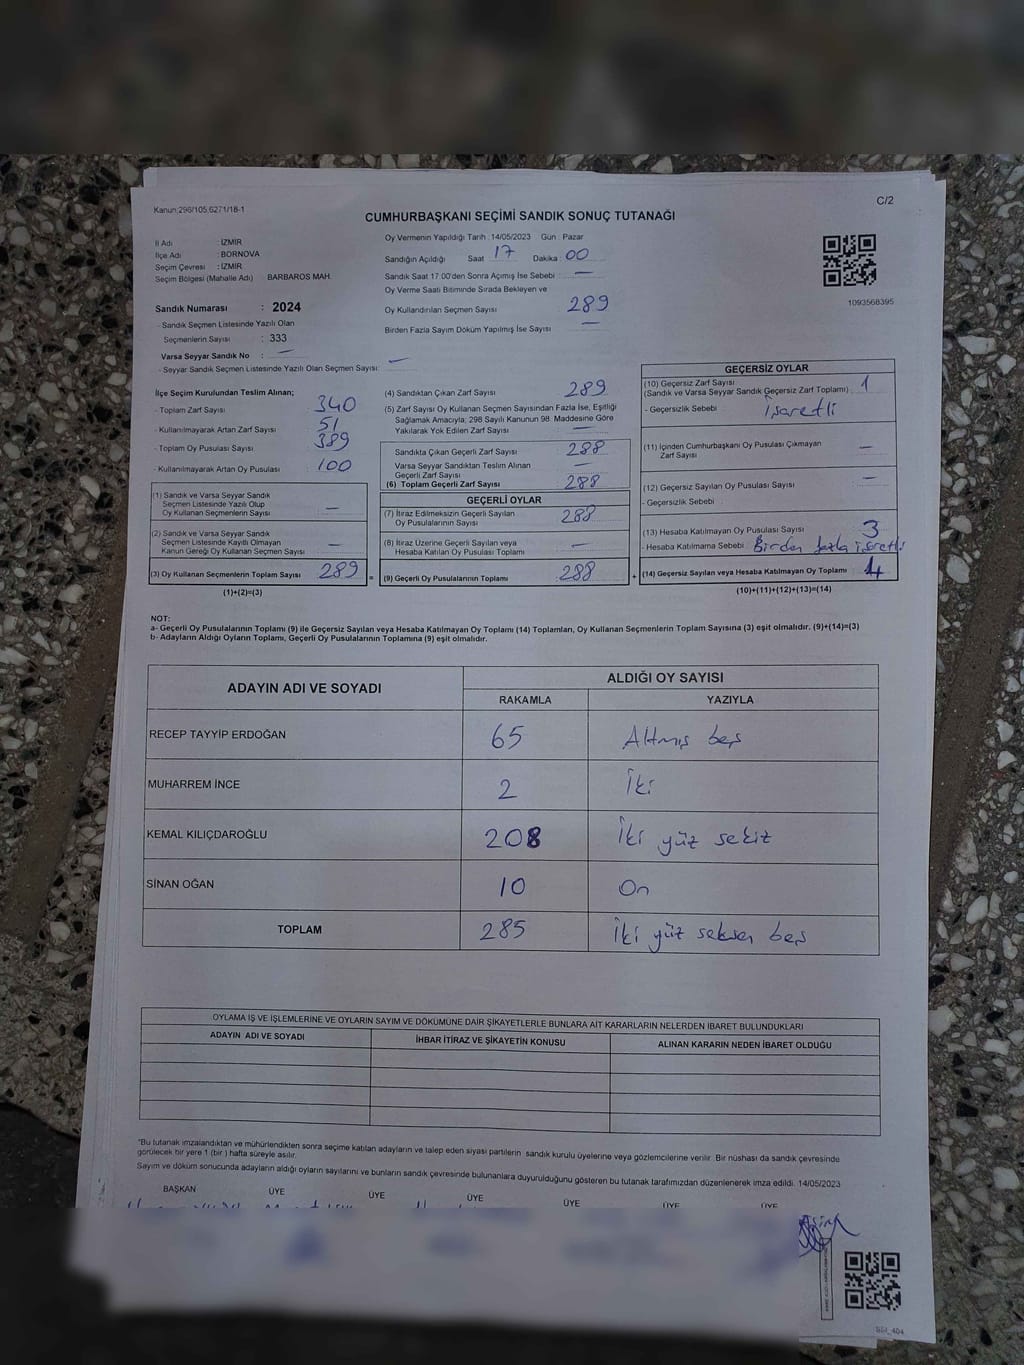 Kanun:298/105,6271/18-1
C/2
CUMHURBAŞKANI SEÇİMİ SANDIK SONUÇ TUTANAĞI
İl Adı : İZMİR
İlçe Adı : BORNOVA
Seçim Çevresi : İZMİR
Seçim Bölgesi (Mahalle Adı) BARBAROS MAH.
Oy Vermenin Yapıldığı Tarih :14/05/2023 Gün : Pazar
Sandığın Açıldığı Saat 17 Dakika : 00
Sandık Saat 17.00'den Sonra Açımış İse Sebebi : —
Oy Verme Saati Bitiminde Sırada Bekleyen ve
Oy Kullandırılan Seçmen Sayısı 289
Birden Fazla Sayım Döküm Yapılmış İse Sayısı —
1093568395
Sandık Numarası : 2024
- Sandık Seçmen Listesinde Yazılı Olan
Seçmenlerin Sayısı : 333
Varsa Seyyar Sandık No : —
- Seyyar Sandık Seçmen Listesinde Yazılı Olan Seçmen Sayısı: —
İlçe Seçim Kurulundan Teslim Alınan;
- Toplam Zarf Sayısı 340
- Kullanılmayarak Artan Zarf Sayısı 51
- Toplam Oy Pusulası Sayısı 389
- Kullanılmayarak Artan Oy Pusulası 100
(1) Sandık ve Varsa Seyyar Sandık
Seçmen Listesinde Yazılı Olup
Oy Kullanan Seçmenlerin Sayısı —
(2) Sandık ve Varsa Seyyar Sandık
Seçmen Listesinde Kayıtlı Olmayan
Kanun Gereği Oy Kullanan Seçmen Sayısı —
(3) Oy Kullanan Seçmenlerin Toplam Sayısı 289 =
(1)+(2)=(3)
(4) Sandıktan Çıkan Zarf Sayısı 289
(5) Zarf Sayısı Oy Kullanan Seçmen Sayısından Fazla İse, Eşitliği
Sağlamak Amacıyla; 298 Sayılı Kanunun 98. Maddesine Göre
Yakılarak Yok Edilen Zarf Sayısı —
Sandıkta Çıkan Geçerli Zarf Sayısı 288
Varsa Seyyar Sandıktan Teslim Alınan
Geçerli Zarf Sayısı —
(6) Toplam Geçerli Zarf Sayısı 288
GEÇERLİ OYLAR
(7) İtiraz Edilmeksizin Geçerli Sayılan
Oy Pusulalarının Sayısı 288
(8) İtiraz Üzerine Geçerli Sayılan veya
Hesaba Katılan Oy Pusulası Toplamı —
(9) Geçerli Oy Pusulalarının Toplamı 288 +
GEÇERSİZ OYLAR
(10) Geçersiz Zarf Sayısı
(Sandık ve Varsa Seyyar Sandık Geçersiz Zarf Toplamı) 1
- Geçersizlik Sebebi : işaretli
(11) İçinden Cumhurbaşkanı Oy Pusulası Çıkmayan
Zarf Sayısı —
(12) Geçersiz Sayılan Oy Pusulası Sayısı —
- Geçersizlik Sebebi :
(13) Hesaba Katılmayan Oy Pusulası Sayısı 3
- Hesaba Katılmama Sebebi : Birden fazla işaretli
(14) Geçersiz Sayılan veya Hesaba Katılmayan Oy Toplamı 4
(10)+(11)+(12)+(13)=(14)
NOT:
a- Geçerli Oy Pusulalarının Toplamı (9) ile Geçersiz Sayılan veya Hesaba Katılmayan Oy Toplamı (14) Toplamları, Oy Kullanan Seçmenlerin Toplam Sayısına (3) eşit olmalıdır. (9)+(14)=(3)
b- Adayların Aldığı Oyların Toplamı, Geçerli Oy Pusulalarının Toplamına (9) eşit olmalıdır.
ADAYIN ADI VE SOYADI ALDIĞI OY SAYISI
RAKAMLA YAZIYLA
RECEP TAYYİP ERDOĞAN 65 Altmış beş
MUHARREM İNCE 2 İki
KEMAL KILIÇDAROĞLU 208 İki yüz sekiz
SİNAN OĞAN 10 On
TOPLAM 285 İki yüz seksen beş
OYLAMA İŞ VE İŞLEMLERİNE VE OYLARIN SAYIM VE DÖKÜMÜNE DAİR ŞİKAYETLERLE BUNLARA AİT KARARLARIN NELERDEN İBARET BULUNDUKLARI
ADAYIN ADI VE SOYADI İHBAR İTİRAZ VE ŞİKAYETİN KONUSU ALINAN KARARIN NEDEN İBARET OLDUĞU
*Bu tutanak imzalandıktan ve mühürlendikten sonra seçime katılan adayların ve talep eden siyasi partilerin sandık kurulu üyelerine veya gözlemcilerine verilir. Bir nüshası da sandık çevresinde
görülecek bir yere 1 (bir ) hafta süreyle asılır.
Sayım ve döküm sonucunda adayların aldığı oyların sayılarını ve bunların sandık çevresinde bulunanlara duyurulduğunu gösteren bu tutanak tarafımızdan düzenlenerek imza edildi. 14/05/2023
BAŞKAN ÜYE ÜYE ÜYE ÜYE ÜYE ÜYE